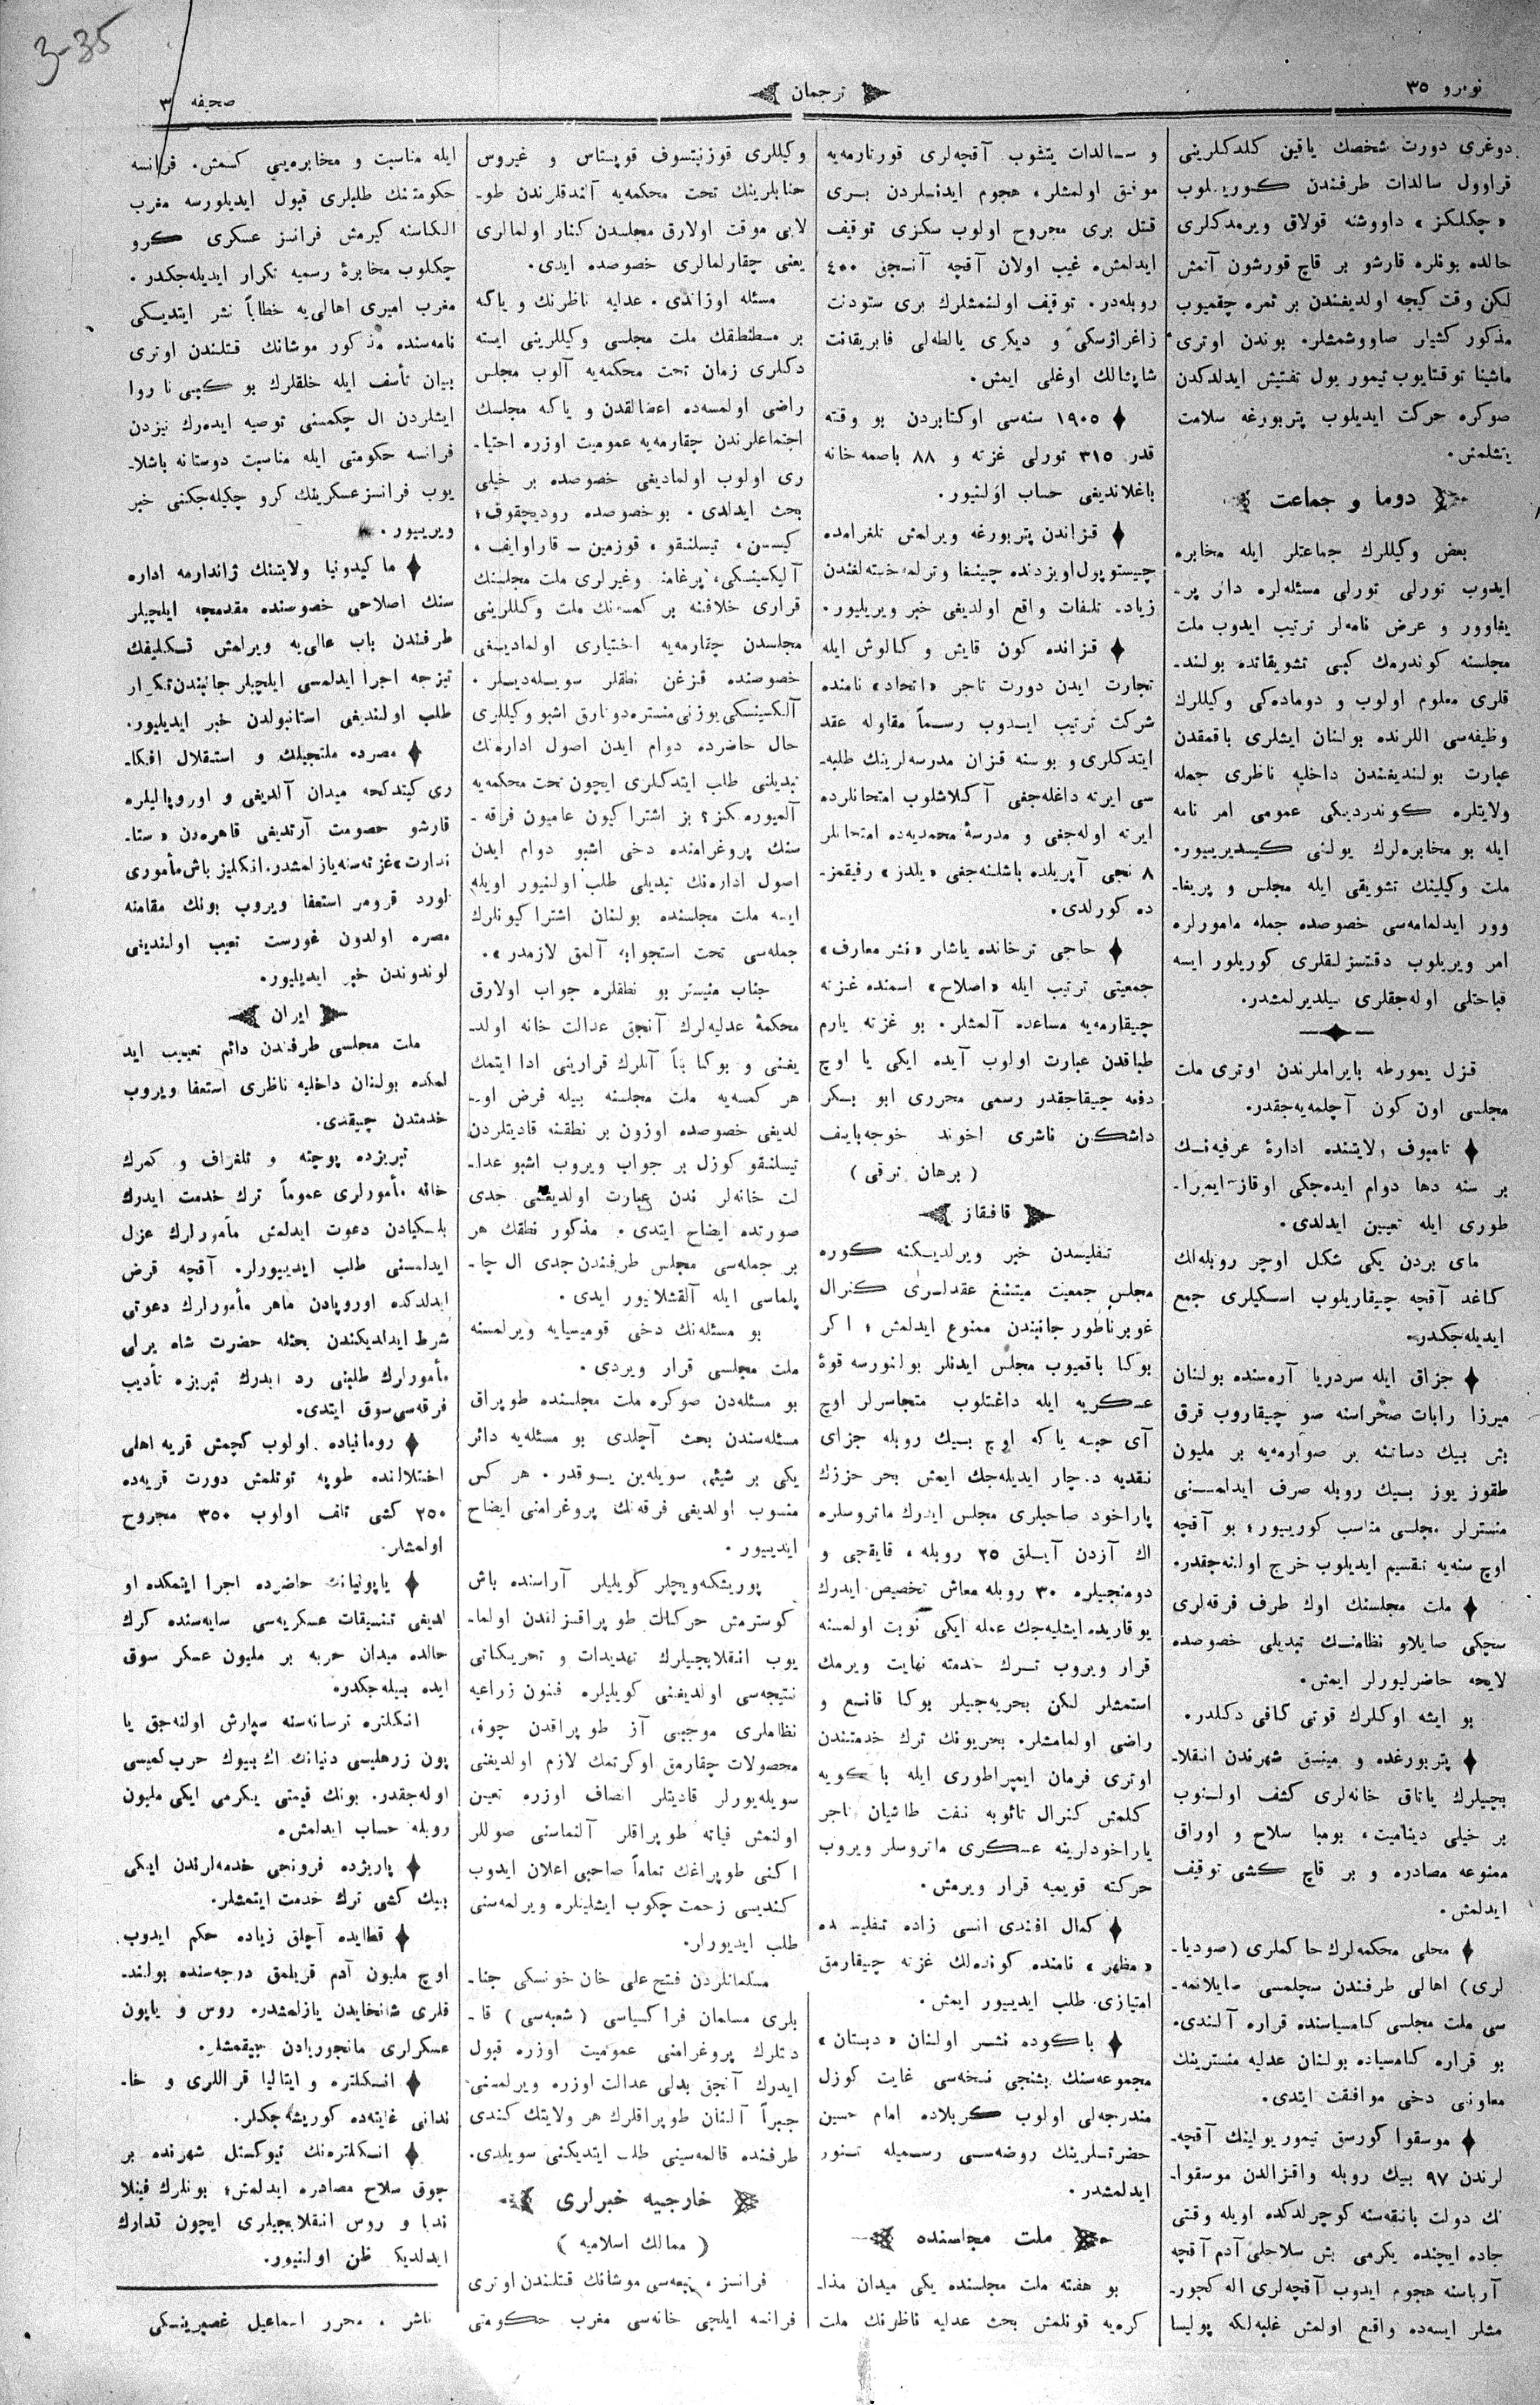 3-35
نومرو ٣٥
ترجمان
صحیفه ٣
دوغری دورت شخصك یاقین كلدكلرینی
قراوول سالدات طرفندن كوریلوب
«چكلكز» داووشنه قولاق ویرمدكلری
حالده بونلره قارشو بر قاچ قورشون آتمش
لكن وقت كیجه اولدیغندن بر ثمره چقمیوب
مذكور كشیلر صاووشمشلر. بوندن اوتری
ماشینا توقتایوب تیمور یول تفتیش ایدلدكدن
صوكره حركت ایدیلوب پتربورغه سلامت
یتشلمش.
دوما و جماعت
بعض وكیللرك جماعتلر ایله مخابره
ایدوب تورلی تورلی مسئله‌لره دائر پر-
یغاوور و عرض نامه‌لر ترتیب ایدوب ملت
مجلسنه كوندرمك كبی تشویقاتده بولند-
قلری معلوم اولوب و دوماده‌كی وكیللرك
وظیفه‌سی اللرنده بولنان ایشلری باقمقدن
عبارت بولندیغندن داخلیه ناظری جمله
ولایتلره كوندردیكی عمومی امر نامه
ایله بو مخابره‌لرك یولنی كیسدیرییور.
ملت وكیلینك تشویقی ایله مجلس و پریغا-
وور ایدلمامه‌سی خصوصده جمله مامورلره
امر ویریلوب دقتسزلقلری كوریلور ایسه
قباحتلی اوله‌جقلری بیلدیرلمشدر.
قزل یمورطه بایراملرندن اوتری ملت
مجلسی اون كون آچلمه‌یه‌جقدر.
تامبوف ولایتنده ادارۀ عرفیه‌نك
بر سنه دها دوام ایده‌جكی اوقاز-ایمپرا-
طوری ایله تعیین ایدلدی.
مای بردن یكی شكل اوچر روبله‌لك
كاغد آقچه چیقاریلوب اسكیلری جمع
ایدیله‌جكدر.
جزاق ایله سردریا آره‌سنده بولنان
میرزا رابات صحراسنه صو چیقاروب قرق
بش بیك دساتنه بر صوارمه‌یه بر ملیون
طقوز یوز بیك روبله صرف ایدلمسنی
منسترلر مجلسی مناسب كورییور؛ بو آقچه
اوچ سنه‌یه تقسیم ایدیلوب خرج اولنه‌جقدر.
ملت مجلسنك اوك طرف فرقه‌لری
سچكی صایلاو نظامنك تبدیلی خصوصده
لایحه حاضرلیورلر ایمش.
بو ایشه اوكلرك قوتی كافی دكلدر.
پتربورغده و مینسق شهرندن انقلا-
بچیلرك یاتاق خانه‌لری كشف اولنوب
بر خیلی دینامیت، بومبا سلاح و اوراق
ممنوعه مصادره و بر قاچ كشی توقیف
ایدلمش.
محلی محكمه‌لرك حاكملری (صودیا-
لری) اهالی طرفندن سچلمسی صایلانمه-
سی ملت مجلسی كامسیاسنده قراره آلندی.
بو قراره كامسیاده بولنان عدلیه منسترینك
معاونی دخی موافقت ایتدی.
موسقوا كورسق تیمور یولینك آقچه-
لرندن ٩٧ بیك روبله واقزالدن موسقوا-
نك دولت بانقه‌سنه كوچرلدكده اویله وقتی
جاده ایچنده یكرمی بش سلاحلی آدم آقچه
آرباسنه هجوم ایدوب آقچه‌لری اله كچور-
مشلر ایسه‌ده واقع اولمش غلبه‌لكه پولیسا
و سالدات یتشوب آقچه‌لری قورتارمه‌یه
موفق اولمشلر، هجوم ایدنلردن بری
قتل بری مجروح اولوب سكزی توقیف
ایدلمش. غیب اولان آقچه آنجق ٤٠٠
روبله‌در. توقیف اولنمشلرك بری ستودنت
زاغراژسكی و دیكری یالطه‌لی فابریقانت
شاپشالك اوغلی ایمش.
١٩٠٥ سنه‌سی اوكتابردن بو وقته
قدر ٣١٥ تورلی غزته و ٨٨ باصمه خانه
باغلاندیغی حساب اولنیور.
قزاندن پتربورغه ویرلمش تلغرامده
چیستوپول اویزدنده چینغا وترلمه خسته‌لغندن
زیاده تلفات واقع اولدیغی خبر ویریلیور.
قزانده كون قایش و كالوش ایله
تجارت ایدن دورت تاجر «اتحاد» نامنده
شركت ترتیب ایدوب رسماً مقاوله عقد
ایتدكلری و بو سنه قزان مدرسه‌لرینك طلبه-
سی ایرته داغله‌جغی آكلاشلوب امتحانلرده
ایرته اوله‌جغی و مدرسۀ محمدیه‌ده امتحانلر
٨ نجی آپریلده باشلنه‌جغی «یلدز» رفیقمز-
ده كورلدی.
حاجی ترخانده یاشار «نشر معارف»
جمعیتی ترتیب ایله «اصلاح» اسمنده غزته
چیقارمه‌یه مساعده آلمشلر. بو غزته یارم
طباقدن عبارت اولوب آیده ایكی یا اوچ
دفعه چیقاجقدر رسمی محرری ابو بكر
داشكن ناشری اخوند خوجه‌بایف
(برهان ترقی)
قافقاز
تفلیسدن خبر ویرلدیكنه كوره
مجلس جمعیت میتنغ عقدلری كنرال
غوبرناطور جانبندن ممنوع ایدلمش؛ اكر
بوكا باقمیوب مجلس ایدنلر بولنورسه قوۀ
عسكریه ایله داغتلوب متجاسرلر اوچ
آی حبسه یاكه اوچ بیك روبله جزای
نقدیه دچار ایدیله‌جك ایمش بحر حزرك
پاراخود صاحبلری مجلس ایدرك ماتروسلره
اك آزدن آیلق ٢٥ روبله، قایقجی و
دومنجیلره ٣٠ روبله معاش تخصیص ایدرك
یوقاریده ایشلیه‌جك عمله ایكی نوبت اولمسنه
قرار ویروب ترك خدمته نهایت ویرمك
استمشلر لكن بحریه‌جیلر بوكا قانع و
راضی اولمامشلر. بحریونك ترك خدمتندن
اوتری فرمان ایمپراطوری ایله باكویه
كلمش كنرال تائوبه نفت طاشیان تاجر
پاراخودلرینه عسكری ماتروسلر ویروب
حركته قویمیه قرار ویرمش.
كمال افندی انسی زاده تفلیسده
«مظهر» نامنده كونده‌لك غزته چیقارمق
امتیازی طلب ایدییور ایمش.
باكوده نشر اولنان «دبستان»
مجموعه‌سنك بشنجی نسخه‌سی غایت كوزل
مندرجه‌لی اولوب كربلاده امام حسین
حضرتلرینك روضه‌سی رسمیله تنور
ایدلمشدر.
ملت مجلسنده
بو هفته ملت مجلسنده یكی میدان مذا-
كره‌یه قونلمش بحث عدلیه ناظرنك ملت
وكیللری قوزنیتسوف قوپستاس و غیروس
جنابلرینك تحت محكمه‌یه آلندقلرندن طو-
لایی موقت اولارق مجلسدن كنار اولمالری
یعنی چقارلمالری خصوصده ایدی.
مسئله اوزاندی. عدلیه ناظرنك و یاكه
بر مسطنطقك ملت مجلسی وكیللرینی ایسته
دكلری زمان تحت محكمه‌یه آلوب مجلس
راضی اولمسه‌ده اعضالقدن و یاكه مجلسك
اجتماعلرندن چقارمه‌یه عمومیت اوزره احتیا-
ری اولوب اولمادیغی خصوصده بر خیلی
بحث ایدلدی. بو خصوصده رودیچقوف؛
كیسسن، تیسلنقو، قوزمین-قاراوایف،
آلیكسینسكی، پرغامنت وغیرلری ملت مجلسنك
قراری خلافنه بر كمسه‌نك ملت وكیللرینی
مجلسدن چقارمه‌یه اختیاری اولمادیغی
خصوصنده قزغن نطقلر سویله‌دیلر.
آلكسینسكی یوزنی منستره دونارق اشبو وكیللری
حال حاضرده دوام ایدن اصول اداره‌نك
تبدیلنی طلب ایتدكلری ایچون تحت محكمه‌یه
آلمیورمسكز؟ بز اشتراكیون عامیون فرقه-
سنك پروغرامنده دخی اشبو دوام ایدن
اصول اداره‌نك تبدیلی طلب اولنیور اویله
ایسه ملت مجلسنده بولنان اشتراكیونلرك
جمله‌سی تحت استجوابه آلمق لازمدر».
جناب منیستر بو نطقلره جواب اولارق
محكمۀ عدلیه‌لرك آنجق عدالت خانه اولد-
یغنی و بوكا بناً آنلرك قرارینی ادا ایتمك
هر كمسه‌یه ملت مجلسنه بیله فرض او-
لدیغی خصوصده اوزون بر نطقنه قادیتلردن
تیسلنقو كوزل بر جواب ویروب اشبو عدا-
لت خانه‌لر ندن عبارت اولدیغنی جدی
صورتده ایضاح ایتدی. مذكور نطقك هر
بر جمله‌سی مجلس طرفندن جدی ال چا-
پلماسی ایله آلقشلانیور ایدی.
بو مسئله‌نك دخی قومیسیایه ویرلمسنه
ملت مجلسی قرار ویردی.
بو مسئله‌دن صوكره ملت مجلسنده طوپراق
مسئله‌سندن بحث آچلدی بو مسئله‌یه دائر
یكی بر شیئی سویله‌ین یوقدر. هر كس
منسوب اولدیغی فرقه‌نك پروغرامنی ایضاح
ایدییور.
پوریشكه‌ویچلر كویلیلر آراسنده باش
كوسترمش حركاتك طوپراقسزلغدن اولما-
یوب انقلابجیلرك تهدیدات و تحریكاتی
نتیجه‌سی اولدیغنی كویلیلره فنون زراعیه
نظاملری موجبی آز طوپراقدن چوق
محصولات چقارمق اوكرتمك لازم اولدیغنی
سویله‌یورلر قادیتلر انصاف اوزره تعیین
اولنمش فیاته طوپراقلر آلنماسنی صوللر
اكنی طوپراغك تماماً صاحبی اعلان ایدوب
كندیسی زحمت چكوب ایشلینلره ویرلمه‌سنی
طلب ایدیورلر.
مسلمانلردن فتح علی خان خویسكی جنا-
بلری مسلمان فراكسیاسی (شعبه‌سی) قا-
دتلرك پروغرامنی عمومیت اوزره قبول
ایدرك آنجق بدلی عدالت اوزره ویرلمسنی
جبراً آلنان طوپراقلرك هر ولایتك كندی
طرفنده قالمه‌سینی طلب ایتدیكنی سویلدی.
خارجیه خبرلری
(ممالك اسلامیه)
فرانسز تبعه‌سی موشانك قتلندن اوتری
فرانسه ایلچی خانه‌سی مغرب حكومتی
ایله مناسبت و مخابره‌یی كسمش. فرانسه
حكومتنك طلبلری قبول ایدیلورسه مغرب
الكاسنه كیرمش فرانسز عسكری كرو
چكلوب مخابرۀ رسمیه تكرار ایدیله‌جكدر.
مغرب امیری اهالی‌یه خطاباً نشر ایتدیكی
نامه‌سنده مذكور موشانك قتلندن اوتری
بیان تأسف ایله خلقلرك بو كبی نا روا
ایشلردن ال چكمسنی توصیه ایده‌رك تیزدن
فرانسه حكومتی ایله مناسبت دوستانه باشلا-
یوب فرانسز عسكرینك كرو چكیله‌جكنی خبر
ویرییور.
ماكیدونیا ولایتنك ژاندارمه اداره
سنك اصلاحی خصوصنده مقدمجه ایلچیلر
طرفندن باب عالی‌یه ویرلمش تكلیفك
تیزجه اجرا ایدلمسی ایلچیلر جانبندن تكرار
طلب اولندیغی استانبولدن خبر ایدیلیور.
مصرده ملتجیلك و استقلال افكا-
ری كیتدكجه میدان آلدیغی و اوروپالیلره
قارشو خصومت آرتدیغی قاهره‌دن «ستا-
ندارت» غزته‌سنه یازلمشدر. انكلیز باش مأموری
لورد قرومر استعفا ویروب بونك مقامنه
مصره اولدون غورست تعیین اولندیغی
لوندوندن خبر ایدیلیور.
ایران
ملت مجلسی طرفندن دائم تعییب اید
لمكده بولنان داخلیه ناظری استعفا ویروب
خدمتدن چیقدی.
تبریزده پوچته و تلغراف و كمرك
خانه مأمورلری عموماً ترك خدمت ایدرك
بلجیكیادن دعوت ایدلمش مأمورلرك عزل
ایدلمسنی طلب ایدییورلر. آقچه قرض
ایدلدكده اوروپادن ماهر مأمورلرك دعوتی
شرط ایدلدیكندن بحثله حضرت شاه یرلی
مأمورلرك طلبنی رد ایدرك تبریزه تأدیب
فرقه‌سی سوق ایتدی.
رومانیاده اولوب كچمش قریه اهلی
اختلالنده طوپه توتلمش دورت قریه‌ده
٢٥٠ كشی تلف اولوب ٣٥٠ مجروح
اولمشلر.
یاپونیانك حاضرده اجرا ایتمكده او
لدیغی تنسیقات عسكریه‌سی سایه‌سنده كرك
حالده میدان حربه بر ملیون عسكر سوق
ایده بیله‌جكدر.
انكلتره ترسانه‌سنه سپارش اولنه‌جق یا
پون زرهلیسی دنیانك اك بیوك حرب كمیسی
اوله‌جقدر. بونك قیمتی یكرمی ایكی ملیون
روبله حساب ایدلمش.
پاریژده فرونجی خدمه‌لرندن ایكی
بیك كشی ترك خدمت ایتمشلر.
قطایده آچلق زیاده حكم ایدوب
اوچ ملیون آدم قریلمق درجه‌سنده بولند-
قلری شانخایدن یازلمشدر. روس و یاپون
عسكرلری مانجوریادن چیقمشلر.
انكلتره و ایتالیا قراللری و خا-
ندانی غایته‌ده كوریشه‌جكلر.
انكلتره‌نك نیوكستل شهرنده بر
چوق سلاح مصادره ایدلمش؛ بونلرك فینلا
ندیا و روس انقلابجیلری ایچون تدارك
ایدلدیكی ظن اولنیور.
ناشر و محرر اسماعیل غصپرینسكی